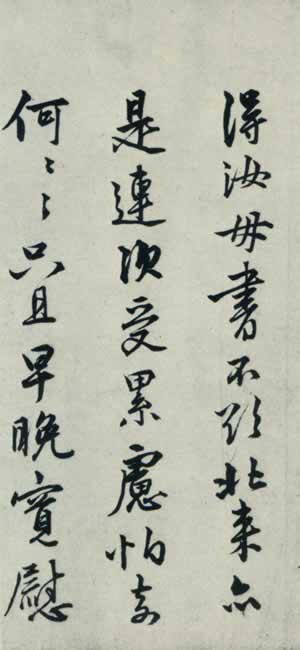 得汝母書不欲北來亦
是連次受累慮怕奈
何〻〻只且早晚寬慰